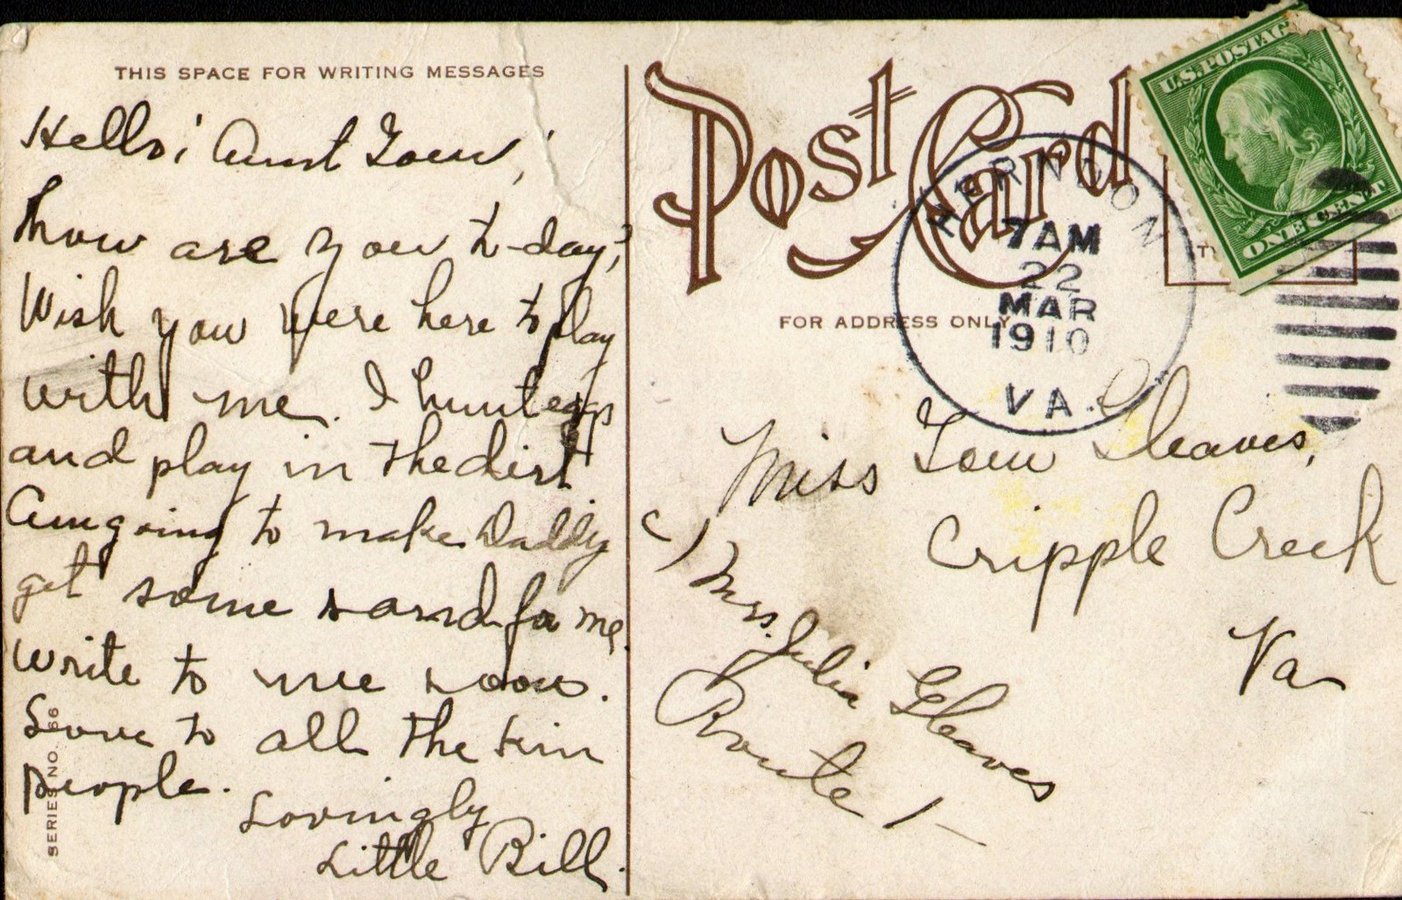 THIS SPACE FOR WRITING MESSAGES
Hello! Aunt Lou,
how are you to-day?
Wish you were here to play
with me. I hunt eggs
and play in the dirt
Am going to make Daddy
get some sand for me.
write to me soon.
Love to all the kin
people.
Lovingly
Little Bill.
SERIES NO. 66
Post Card
FOR ADDRESS ONLY
U.S. POSTAG
ONE CENT
HERNDON
7 AM
22
MAR
1910
VA.
Miss Lou Gleaves,
Cripple Creek
Va
c/ Mrs. Julia Gleaves
Route 1